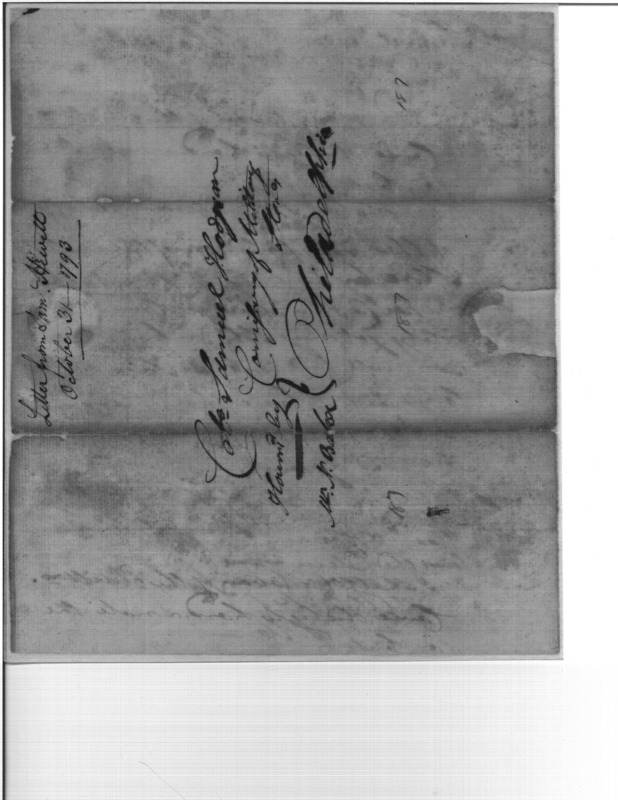 Letter from Hewitt
October 31 - 1793
Colo Samuel Hodgdon
Commissary of Military
Stores
Philadelphia
by
Mr.
187
187
187